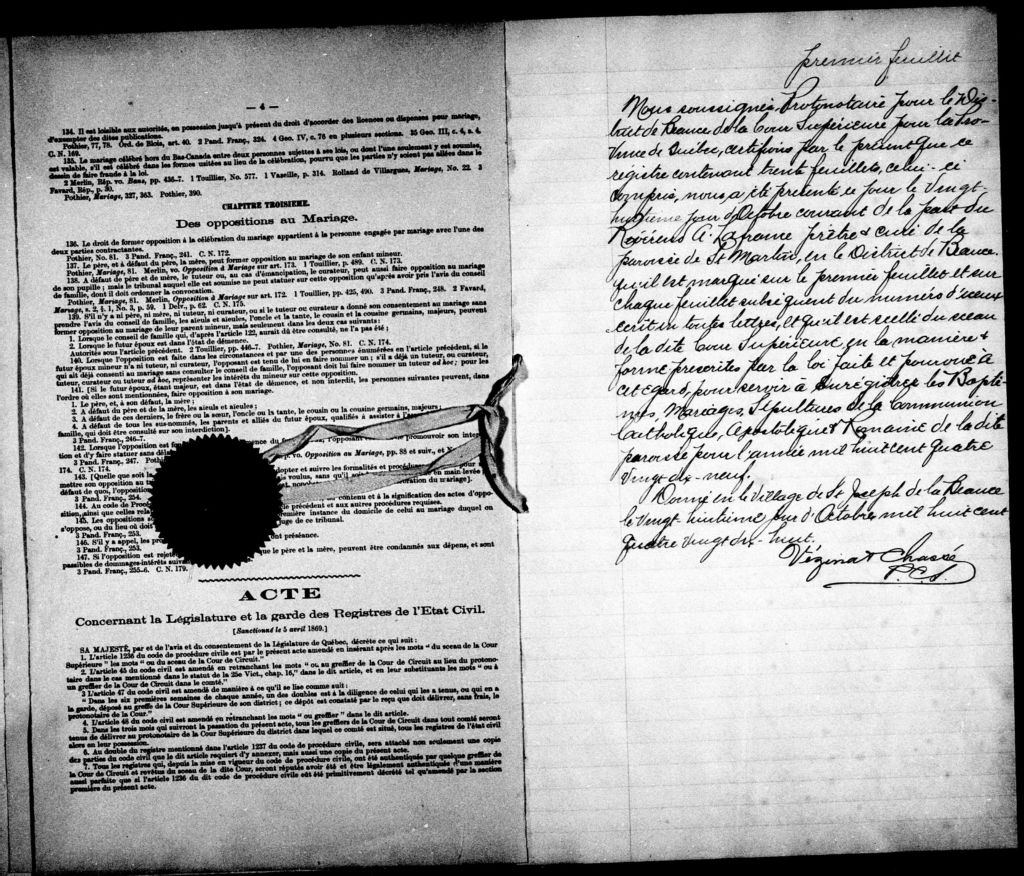 — 4 —
134. Il est loisible aux autorités, en possession jusqu'à présent du droit d'accorder des licences ou dispenses pour mariage,
d'exempter des dites publications.
Pothier, 77, 78. Ord. de Blois, art. 40. 2 Pand. Franç., 324. 4 Geo. IV, c. 76 en plusieurs sections. 35 Geo. III, c. 4, s. 4.
C. N. 169.
135. Le mariage célébré hors du Bas-Canada entre deux personnes sujettes à ses lois, ou dont l'une seulement y est soumise,
est valable, s'il est célébré dans les formes usitées au lieu de la célébration, pourvu que les parties n'y soient pas allées dans le
dessein de faire fraude à la loi.
2 Merlin, Rép. vo. Bans, pp. 436-7. 1 Toullier, No. 577. 1 Vazeille, p. 314. Rolland de Villargues, Mariage, No. 22. 3
Favard, Rép., p. 30.
Pothier, Mariage, 327, 363. Pothier, 390.
CHAPITRE TROISIEME.
Des oppositions au Mariage.
136. Le droit de former opposition à la célébration du mariage appartient à la personne engagée par mariage avec l'une des
deux parties contractantes.
Pothier, No. 81. 3 Pand. Franç., 241. C. N. 172.
137. Le père, et à défaut du père, la mère, peut former opposition au mariage de son enfant mineur.
Pothier, Mariage, 81. Merlin, vo. Opposition à Mariage sur art. 173. 1 Toullier, p. 489. C. N. 173.
138. A défaut de père et de mère, le tuteur, ou, au cas d'émancipation, le curateur, peut aussi faire opposition au mariage
de son pupille; mais le tribunal auquel elle est soumise ne peut statuer sur cette opposition qu'après avoir pris l'avis du conseil
de famille, dont il doit ordonner la convocation.
Pothier, Mariage, 81. Merlin, Opposition à Mariage sur art. 172. 1 Toullier, pp. 425, 490. 3 Pand. Franç., 248. 2 Favard,
Mariage, s. 2, § 1, No. 3, p. 59. 1 Delv., p. 62. C. N. 175.
139. S'il n'y a ni père, ni mère, ni tuteur, ni curateur, ou si le tuteur ou curateur a donné son consentement au mariage sans
prendre l'avis du conseil de famille, les aïeuls et aïeules, l'oncle et la tante, le cousin et la cousine germains, majeurs, peuvent
former opposition au mariage de leur parent mineur, mais seulement dans les deux cas suivants:
1. Lorsque le conseil de famille qui, d'après l'article 122, aurait dû être consulté, ne l'a pas été;
2. Lorsque le futur époux est dans l'état de démence.
Autorités sous l'article précédent. 2 Toullier, pp. 446-7. Pothier, Mariage, No. 81. C. N. 174.
140. Lorsque l'opposition est faite dans les circonstances et par une des personnes énumérées en l'article précédent, si le
futur époux mineur n'a ni tuteur, ni curateur, l'opposant est tenu de lui en faire nommer un; s'il a déjà un tuteur, ou curateur,
qui ait déjà consenti au mariage sans consulter le conseil de famille, l'opposant doit lui faire nommer un tuteur ad hoc; pour les
tuteur, curateur ou tuteur ad hoc, représenter les intérêts du mineur sur cette opposition.
141. [Si le futur époux, étant majeur, est dans l'état de démence, et non interdit, les personnes suivantes peuvent, dans
l'ordre où elles sont mentionnées, faire opposition à son mariage.
1. Le père, et, à son défaut, la mère;
2. A défaut du père et de la mère, les aïeuls et aïeules;
3. A défaut de ces derniers, le frère ou la sœur, l'oncle ou la tante, le cousin ou la cousine germains, majeurs;
4. A défaut de tous les sus-nommés, les parents et alliés du futur époux, qualifiés à assister à
famille, qui doit être consulté sur son
3 Pand. Franç., 246-7.
142. Lorsque l'opposition est l'opposant promouvoir son
tion et d'y faire statuer sans
3 Pand. Franç., 247. vo. Opposition au Mariage, pp. 88 et suiv., et
174. C. N. 174.
143. [Quelle que soit adopter et suivre les formalités et
mettre son opposition au voulus, sans qu'il en main levée
défaut de quoi, l'opposition du mariage].
3 Pand. Franç., 254.
144. Au code de contenu et à la signification des actes d'oppo-
sition, ainsi que celles précédent et aux autres procédures requises.
145. Les oppositions première instance du domicile de celui au mariage duquel on
s'oppose, ou du lieu où doit juge de ce tribunal.
3 Pand. Franç., 253.
146. S'il y a appel, les présence.
3 Pand. Franç., 253.
147. Si l'opposition est que le père et la mère, peuvent être condamnés aux dépens, et sont
passibles de dommages-intérêts
3 Pand. Franç., 255-6. C. N. 179.
ACTE
Concernant la Législature et la garde des Registres de l'Etat Civil.
[Sanctionné le 5 avril 1869.]
SA MAJESTÉ, par et de l'avis et du consentement de la Législature de Québec, décrète ce qui suit:
1. L'article 1236 du code de procédure civile est par le présent acte amendé en insérant après les mots "du sceau de la Cour
Supérieure" les mots "ou du sceau de la Cour de Circuit."
2. L'article 45 du code civil est amendé en retranchant les mots "ou au greffier de la Cour de Circuit au lieu du protono-
taire dans le cas mentionné dans le statut de la 25e Vict., chap. 16," dans le dit article, et en leur substituant les mots "ou à
un greffier de la Cour de Circuit dans le comté."
3 L'article 47 du code civil est amendé de manière à ce qu'il se lise comme suit:
"Dans les six premières semaines de chaque année, un des doubles est à la diligence de celui qui les a tenus, ou qui en a
la garde, déposé au greffe de la Cour Supérieure de son district; ce dépôt est constaté par le reçu que doit délivrer, sans frais, le
protonotaire de la Cour."
4. L'article 48 du code civil est amendé en retranchant les mots "ou greffier" dans le dit article.
5. Dans les trois mois qui suivront la passation du présent acte, tous les greffiers de la Cour de Circuit dans tout comté seront
tenus de délivrer au protonotaire de la Cour Supérieure du district dans lequel ce comté est situé, tous les registres de l'état civil
alors en leur possession.
6. Au double du registre mentionné dans l'article 1237 du code de procédure civile, sera attaché non seulement une copie
des parties du code civil que le dit article requiert d'y annexer, mais aussi une copie du présent acte.
7. Tous les registres qui, depuis la mise en vigueur du code de procédure civile, ont été authentiqués par quelque greffier de
la Cour de Circuit et revêtus du sceau de la dite Cour, seront réputés avoir été et être légalement authentiqués d'une manière
aussi parfaite que si l'article 1236 du dit code de procédure civile eût été primitivement décrété tel qu'amendé par la section
première du présent acte.
premier feuillet
Nous soussignés Protonotaire pour le Dis-
trict de Beauce de la Cour Supérieure pour la Pro-
vince de Québec, certifions par le présent que ce
registre contenant trente feuillets, celui-ci
compris, nous a été présenté ce jour le vingt-
huitième jour d'Octobre courant de la part du
Révérend A. Lafrance prêtre & curé de la
paroisse de St Martin, en le District de Beauce
qu'il est marqué sur le premier feuillet et sur
chaque feuillet subséquent du numéro d'iceux
écrit en toutes lettres, et qu'il est scellé du sceau
de la dite Cour Supérieure en la manière &
forme prescrites par la loi faite et pourvue à
cet égard, pour servir à Enrégistrer les Baptê-
mes, Mariages, Sépultures de la Communion
Catholique, Apostolique & Romaine de la dite
paroisse pour l'année mil huit cent quatre
vingt-dix-neuf.
Donné en le Village de St Joseph de la Beauce
le vingt-huitième jour d'Octobre mil huit cent
quatre vingt dix-huit.
Vézina & Chassé
P.C.S.